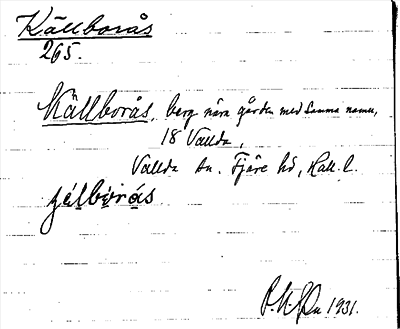 Källborås
265.
Källborås, berg nära gården med samma namn,
18 Vallda,
Vallda sn. Fjäre hd, Hall. l.
1931.